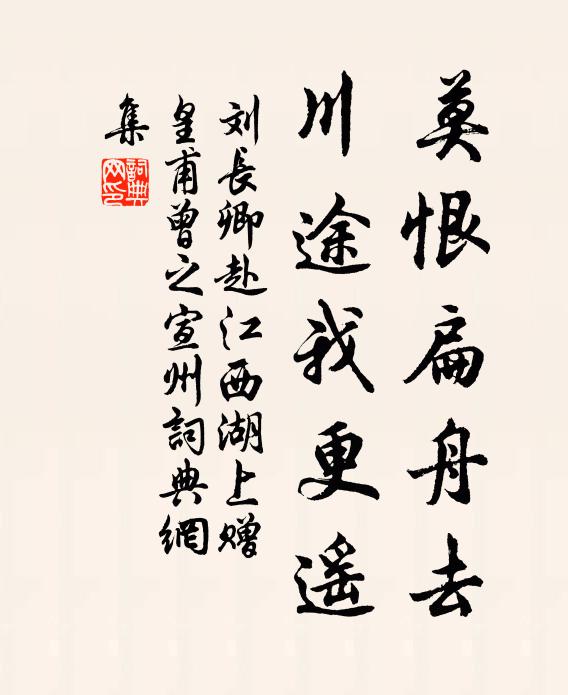 莫恨扁舟去
川途我更遥
刘長卿赴江西湖上贈
皇甫曾之宣州詞典網
集
詞典
网印